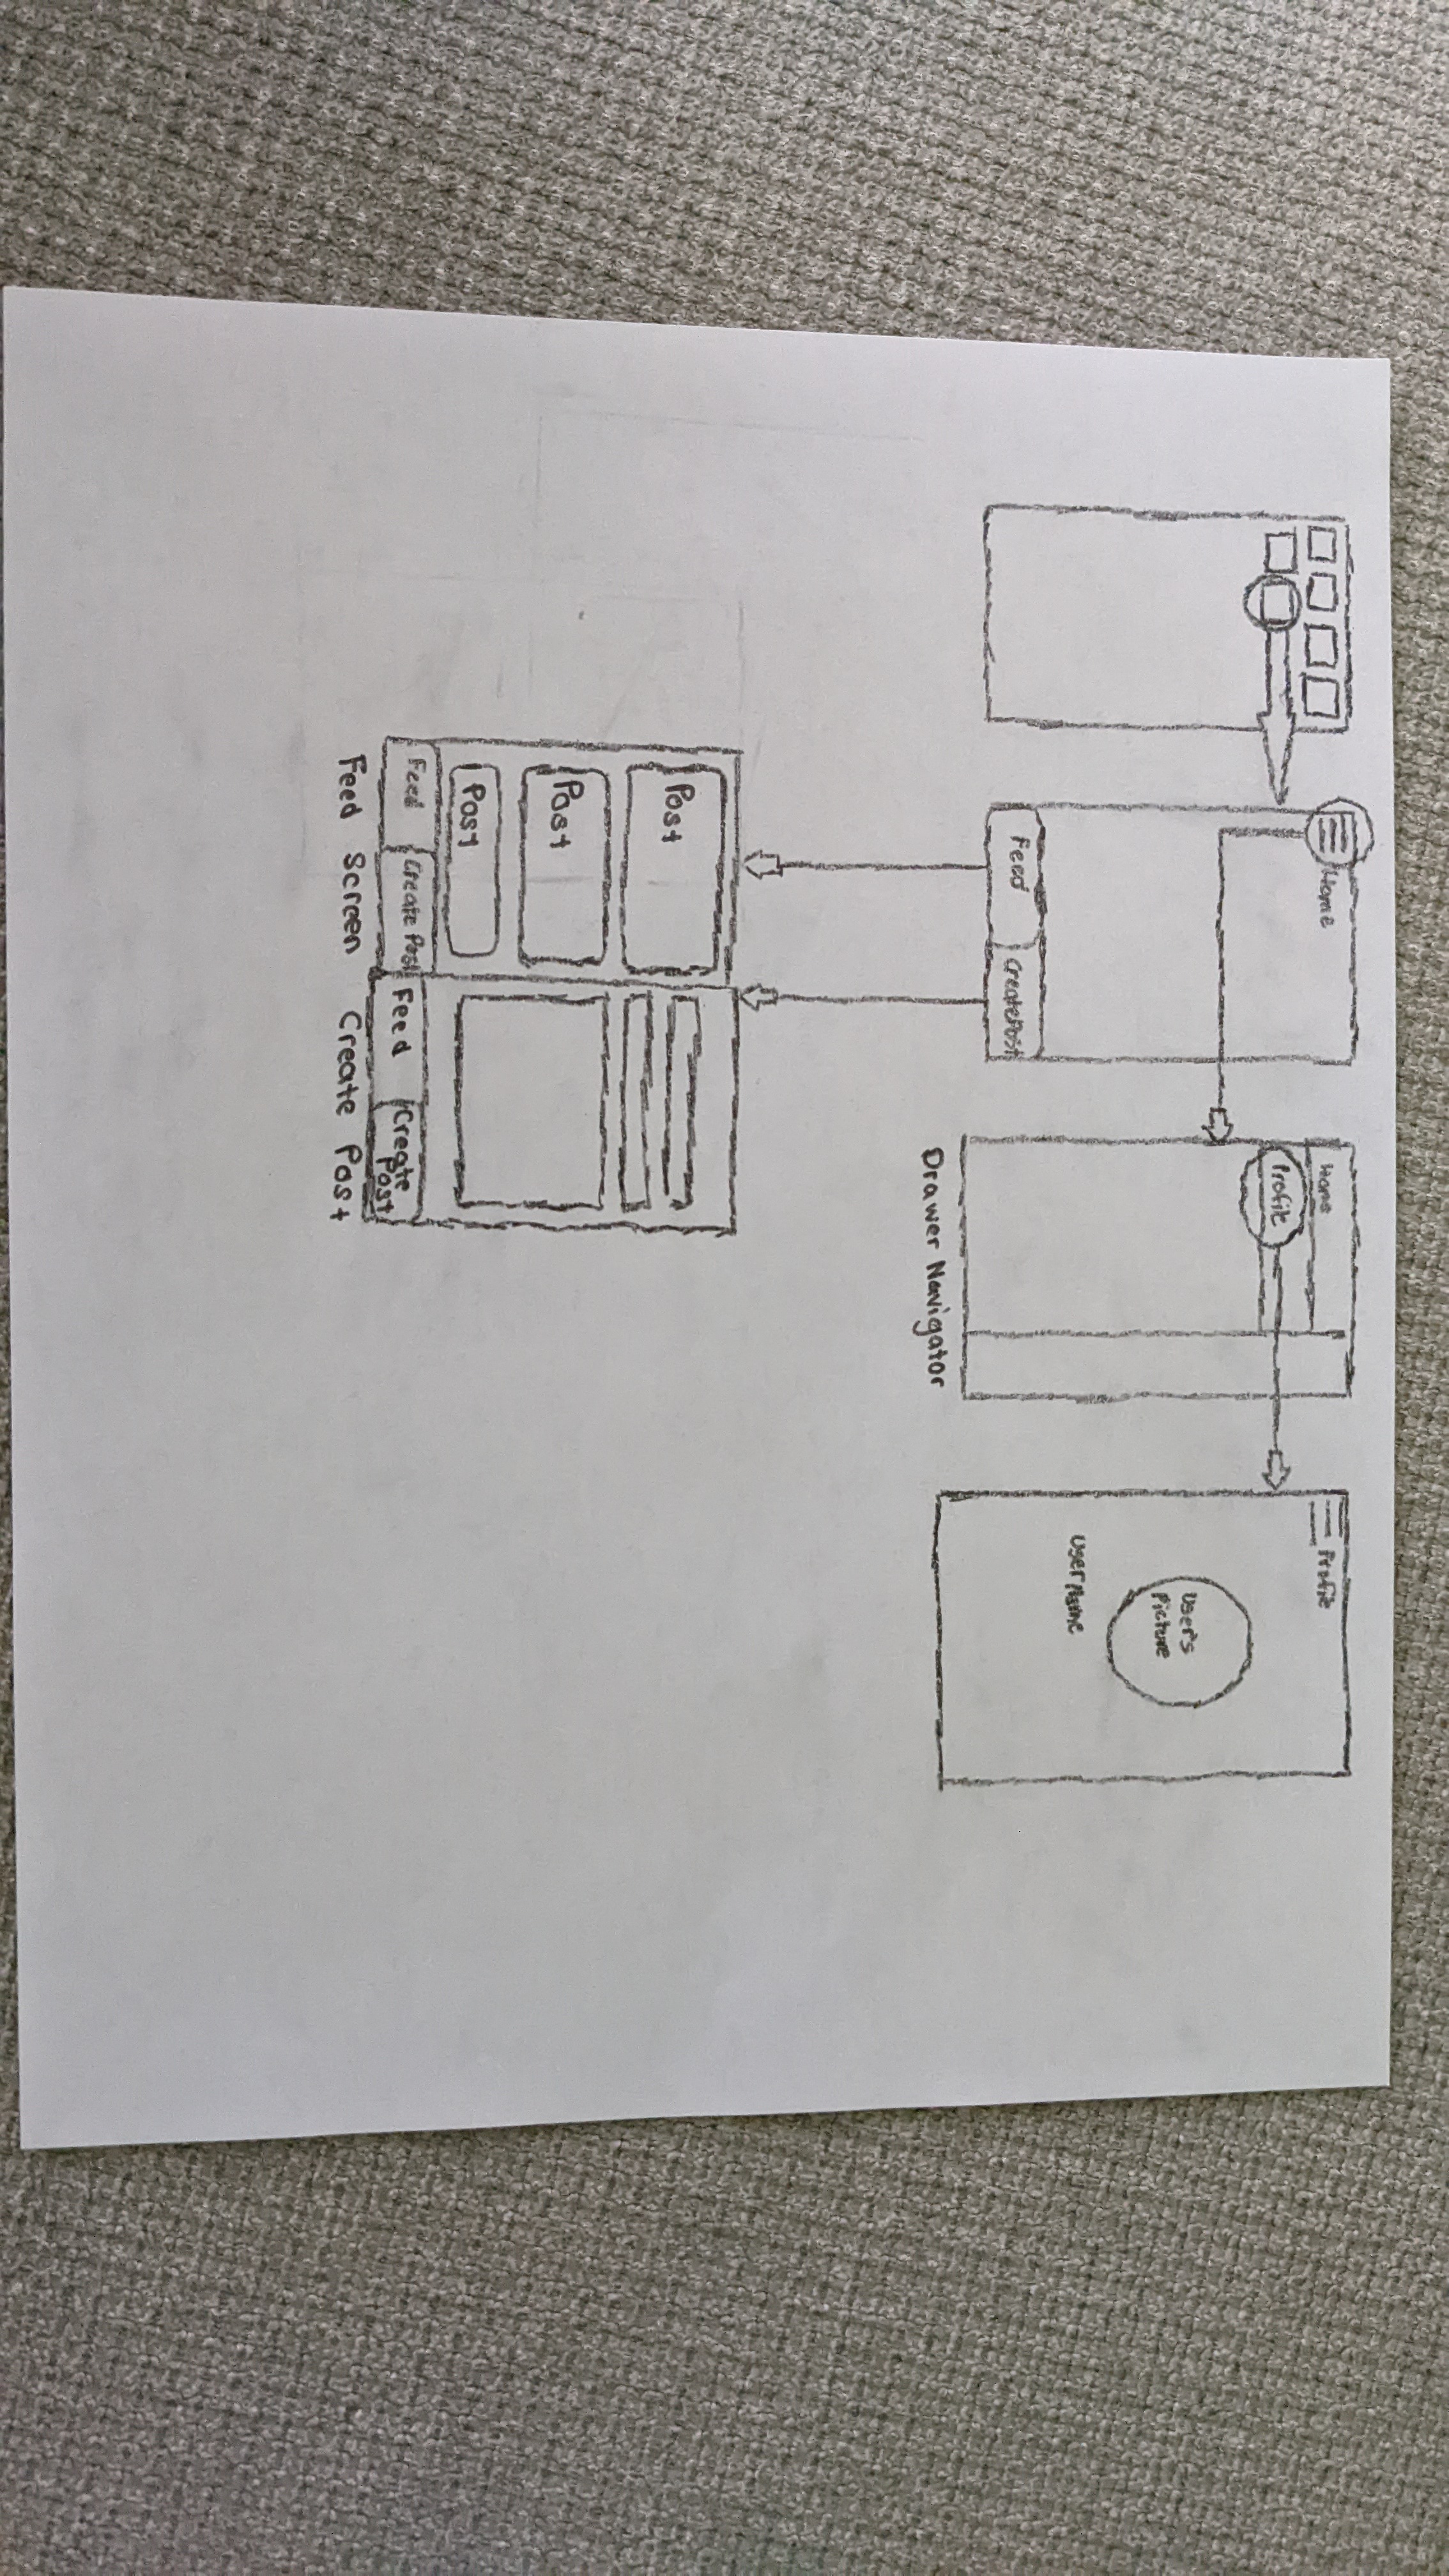 Home
Feed
CreatePost
Home
Profile
Drawer Navigator
Profile
User's
Picture
UserName
Post
Post
Post
Feed
Create Post
Feed Screen
Feed
Create
Post
Create Post